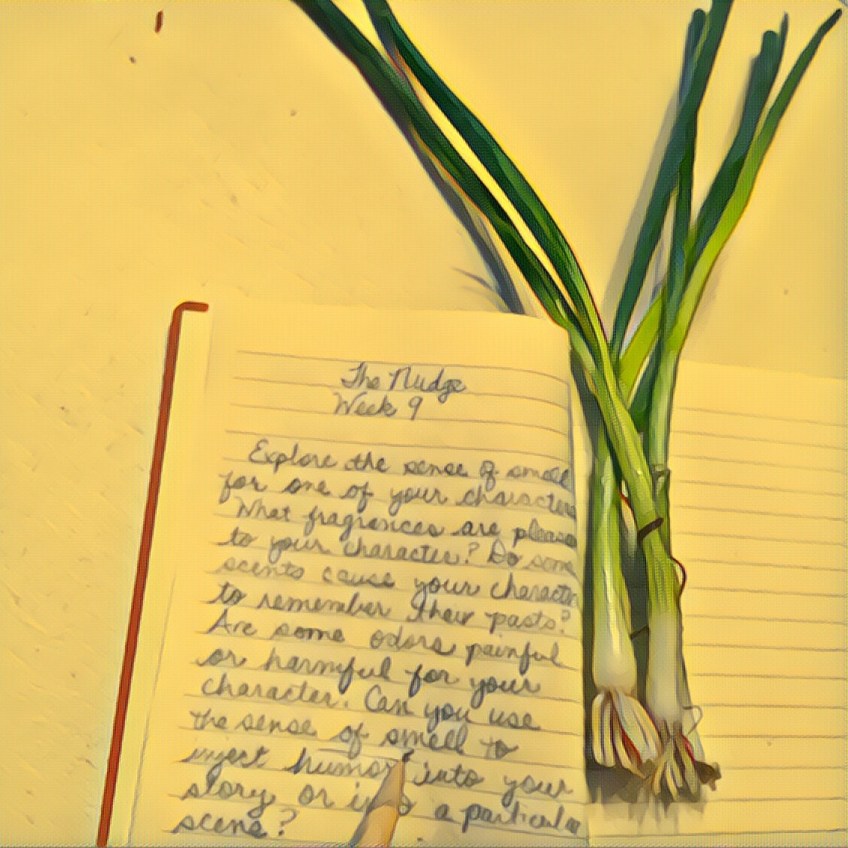 The Nudge
Week 9
Explore the sense of smell
for one of your characters
What fragrances are pleasa
to your character? Do some
scents cause your character
to remember their pasts?
Are some odors painful
or harmful for your
character. Can you use
the sense of smell to
inject humor into your
story or into a particular
scene?